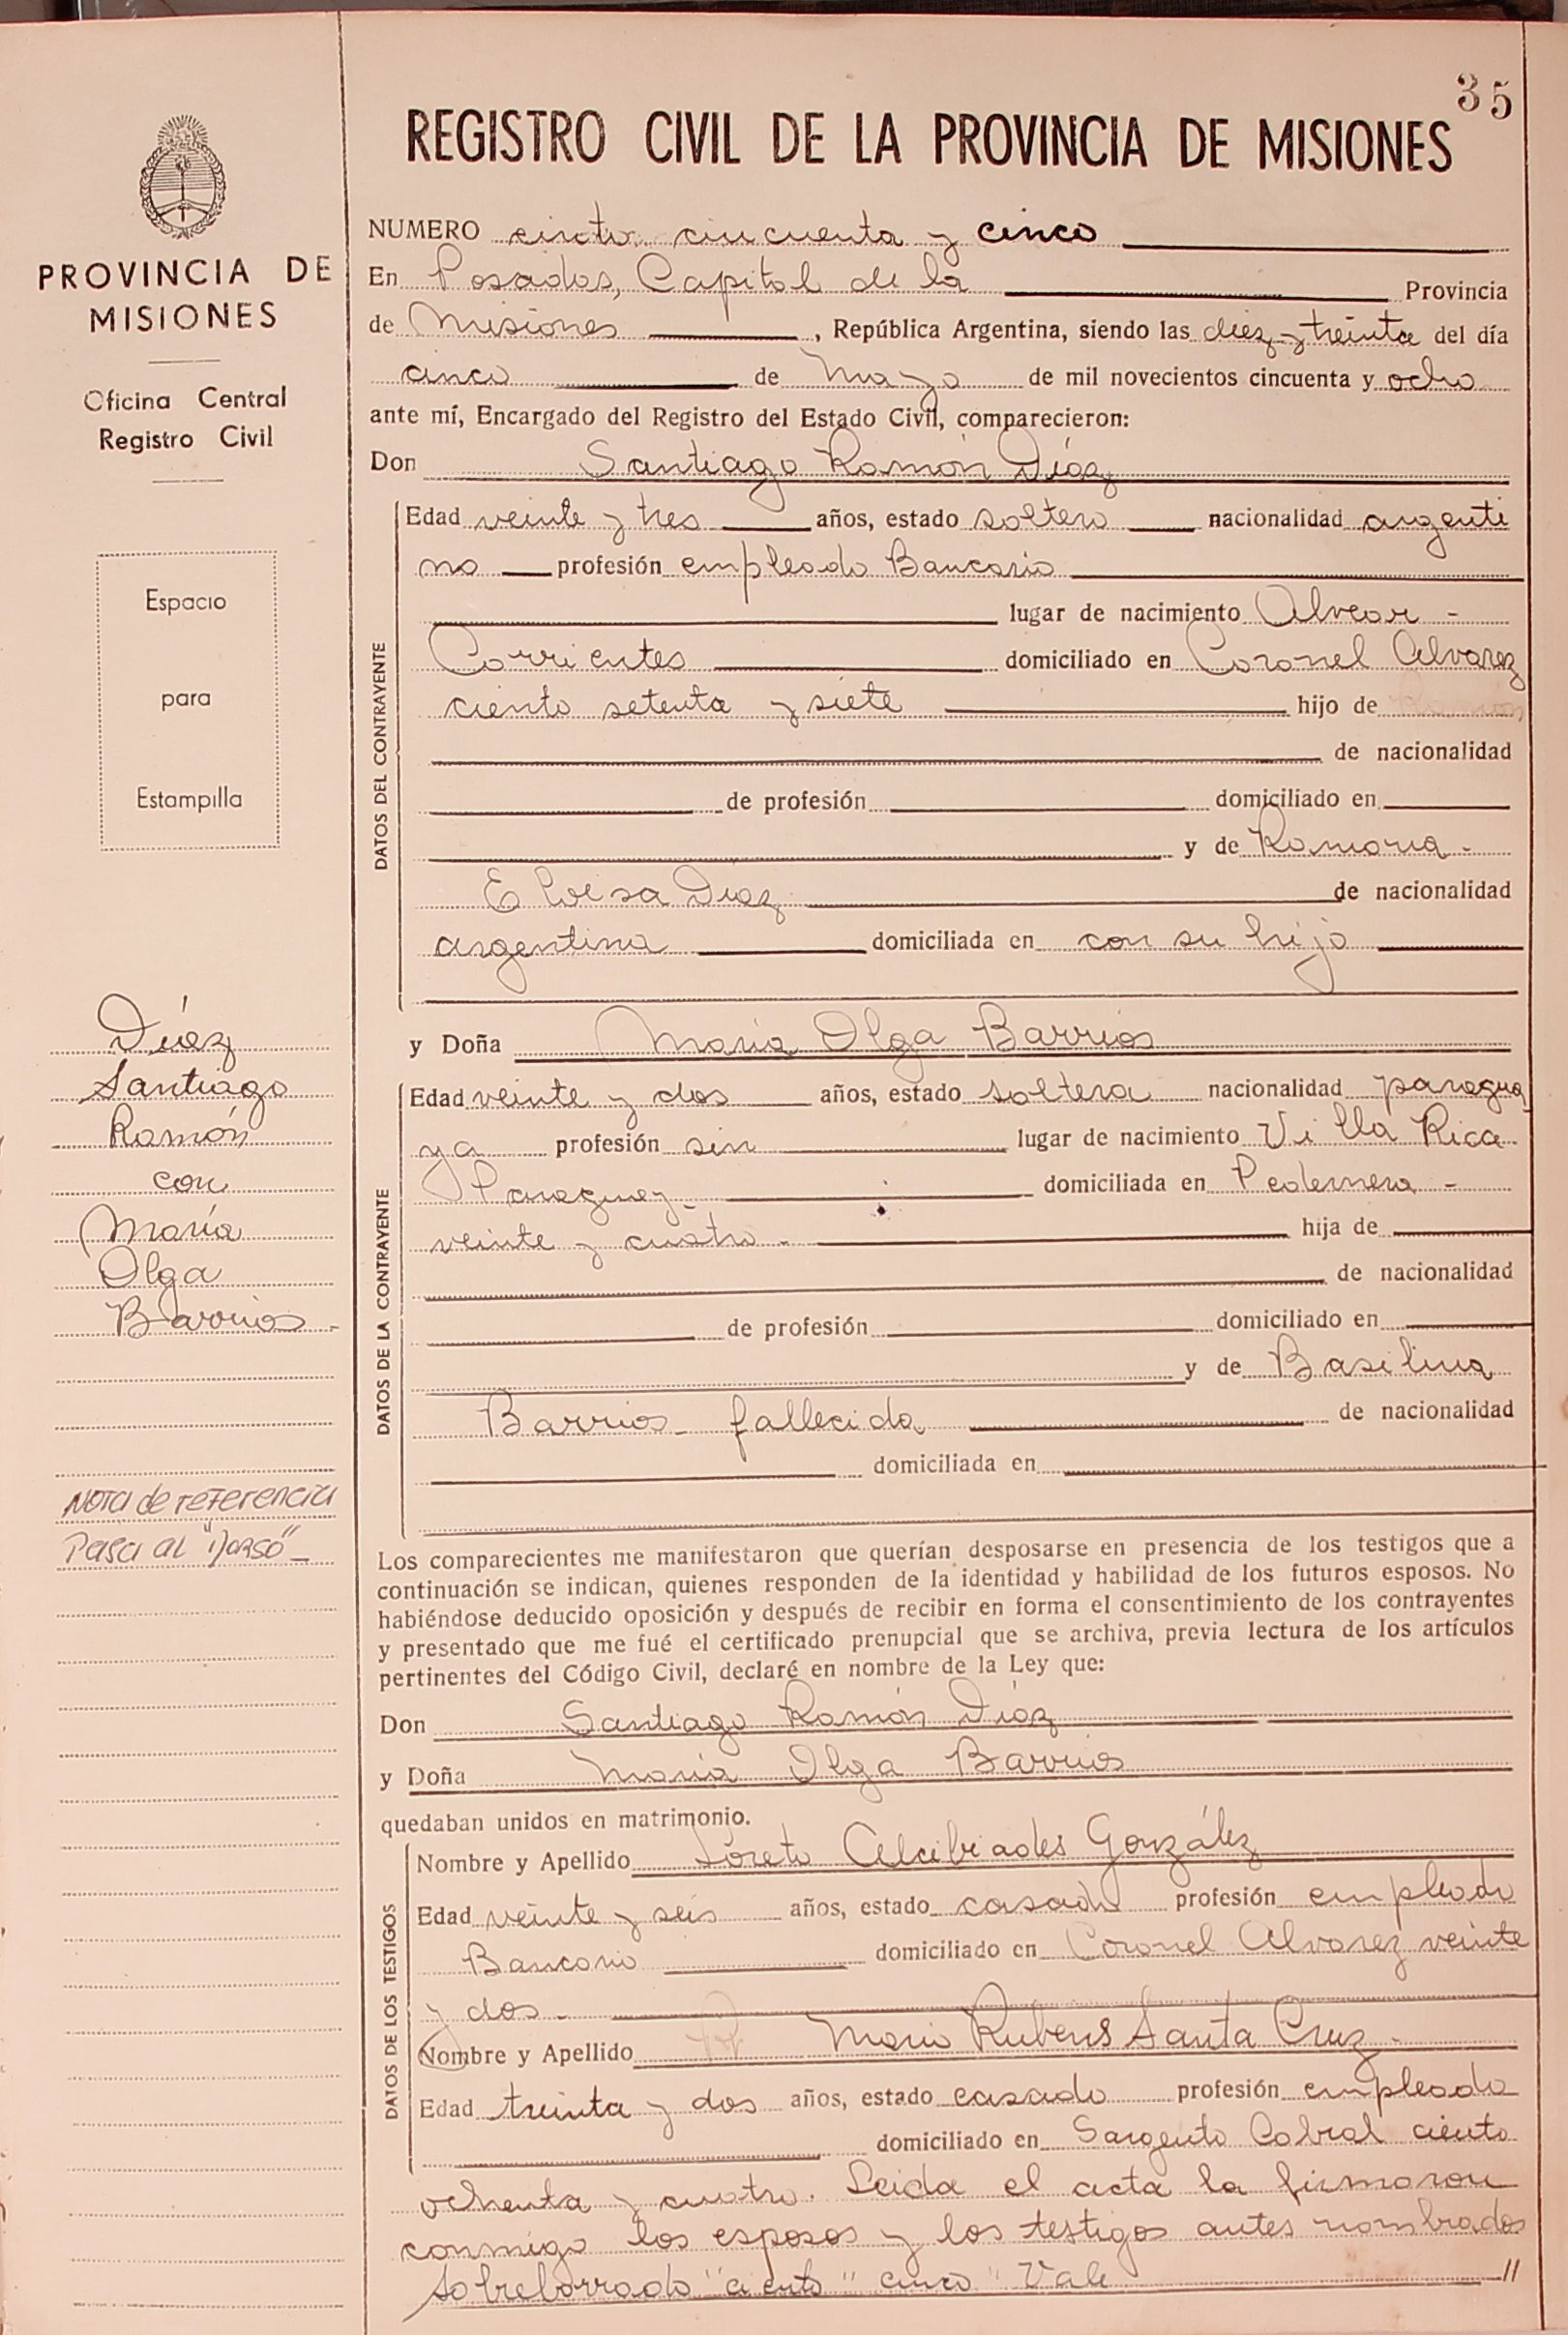 35
REGISTRO CIVIL DE LA PROVINCIA DE MISIONES
PROVINCIA DE
MISIONES
Oficina Central
Registro Civil
Espacio
para
Estampilla
Díaz
Santiago
Ramón
con
María
Olga
Barrios.
Nota de referencia
Pasa al "Dorso"
NUMERO ciento cincuenta y cinco
En Posadas, Capital de la Provincia
de Misiones, República Argentina, siendo las diez y treinta del día
cinco de Mayo de mil novecientos cincuenta y ocho
ante mí, Encargado del Registro del Estado Civil, comparecieron:
Don Santiago Ramón Díaz
DATOS DEL CONTRAYENTE
Edad veinte y tres años, estado soltero nacionalidad argenti
no profesión empleado Bancario
lugar de nacimiento Alvear -
Corrientes domiciliado en Coronel Alvarez
ciento setenta y siete hijo de Ramón
de nacionalidad
de profesión domiciliado en
y de Ramona -
Eloisa Diaz de nacionalidad
argentina domiciliada en con su hijo
y Doña María Olga Barrios
DATOS DE LA CONTRAYENTE
Edad veinte y dos años, estado soltera nacionalidad paragua
ya profesión sin lugar de nacimiento Villa Rica
Paraguay domiciliada en Pedernera -
veinte y cuatro - hija de
de nacionalidad
de profesión domiciliado en
y de Basilina
Barrios - fallecida de nacionalidad
domiciliada en
Los comparecientes me manifestaron que querían desposarse en presencia de los testigos que a
continuación se indican, quienes responden de la identidad y habilidad de los futuros esposos. No
habiéndose deducido oposición y después de recibir en forma el consentimiento de los contrayentes
y presentado que me fué el certificado prenupcial que se archiva, previa lectura de los artículos
pertinentes del Código Civil, declaré en nombre de la Ley que:
Don Santiago Ramón Díaz
y Doña María Olga Barrios
quedaban unidos en matrimonio.
DATOS DE LOS TESTIGOS
Nombre y Apellido Loreto Alcibiades González
Edad veinte y seis años, estado casado profesión empleado
Bancario domiciliado en Coronel Alvarez veinte
y dos -
Nombre y Apellido Mario Rubens Santa Cruz -
Edad treinta y dos años, estado casado profesión empleado
domiciliado en Sargento Cabral ciento
ochenta y cuatro. Leida el acta la firmaron
conmigo los esposos y los testigos antes nombrados
sobreborrado "ciento" cinco" Vale //